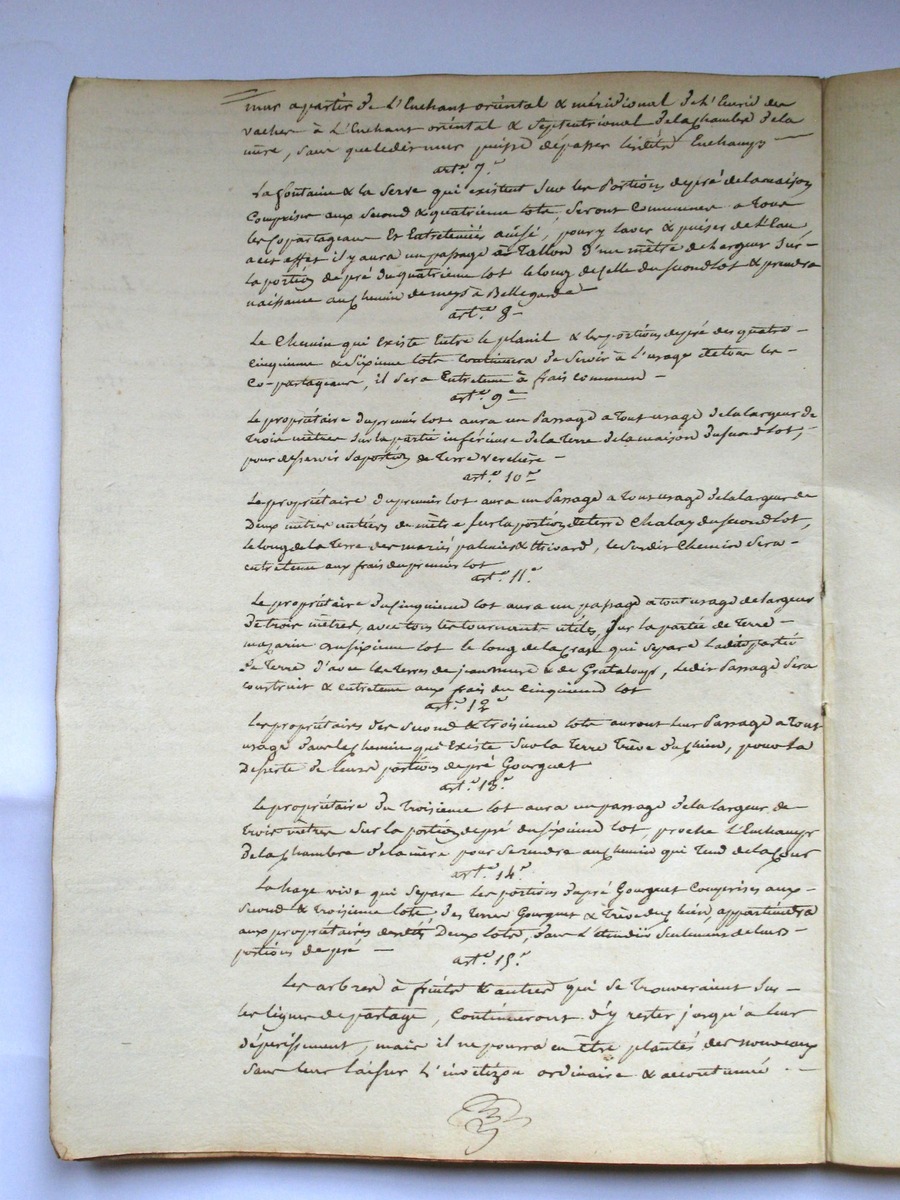 mur a partir de L'Enchant oriental & méridional de L'Ecurie des
vaches à L'Enchant oriental & septentrional de la chambre de la
mère, sans que ledit mur puisse dépasser lesdits Enchamps
art.e 7.e
La fontaine & la Serve qui existent sur les Portions de pré de la maison
Comprises aux second & quatrieme lots, seront Communes a tous
les Copartageans Et Entretenues aussi, pour y laver & puiser de L'Eau
a cet effet il y aura un passage à Tallon D'un mètre de Largeur sur
la portion de pré du quatrieme lot le long de celle du second lot & prendra
naissance au chemin de meys à Bellegarde
art.e 8
Le Chemin qui existe Entre le planil & les portions de pré des quatre
cinquieme & sixieme lots continuera de servir à L'usage de tous les
Co-partageans, il sera Entretenu à frais communs
art.e 9e
Le propriétaire du premier lot aura un Passage a Tout usage de la largeur de
Trois mètres sur la partie inférieure de la Terre de la maison du second lot,
pour desservir sa portion de Terre verchère
art.e 10e
Le propriétaire du premier lot aura un Passage a Tout usage de la largeur de
Deux mètres sur la portion de terre Chalay du second lot,
le long de la Terre des mariés & Thivard, le susdit Chemin sera
entretenu aux frais du premier lot
art.e 11.e
Le propriétaire du Cinquieme lot aura un passage a tout usage de largeur
De trois mètres, avec tous les tournants utiles, sur la partie de Terre
mazarin du sixieme lot le long de la qui separe ladite partie
De Terre D'avec les Terres de jean & de Grataloup, Ledit Passage sera
construit & entretenu aux frais du cinquieme lot
art.e 12e
Les propriétaires des second & troisieme lots auront leur Passage a Tout
usage dans le chemin qui Existe Sur la Terre Trève du chien, pour la
Desserte de leurs portions de pré Gourguet
art.e 13.e
Le propriétaire du Troisieme lot aura un passage de la largeur de
Trois mètres Sur la portion de pré du sixieme lot, proche L'Enchamp
De la Chambre de la mère pour se rendre au chemin qui Tend de la Cour
art.e 14.e
La haye vive qui separe les portions du pré Gourguet Comprises aux
second & troisieme lots, des Terres Gourguet & Trève du chien, appartiendra
aux propriétaires desdits Deux lots, dans L'étendue seulement de leurs
portions de pré
art.e 15.e
Les arbres à fruits & autres qui se Trouveraient sur
les lignes de partage, Continueront d'y rester jusqu'a leur
dépérissement, mais il ne pourra en être plantés de nouveaux
sans leur laisser L' ordinaire & accoutumé